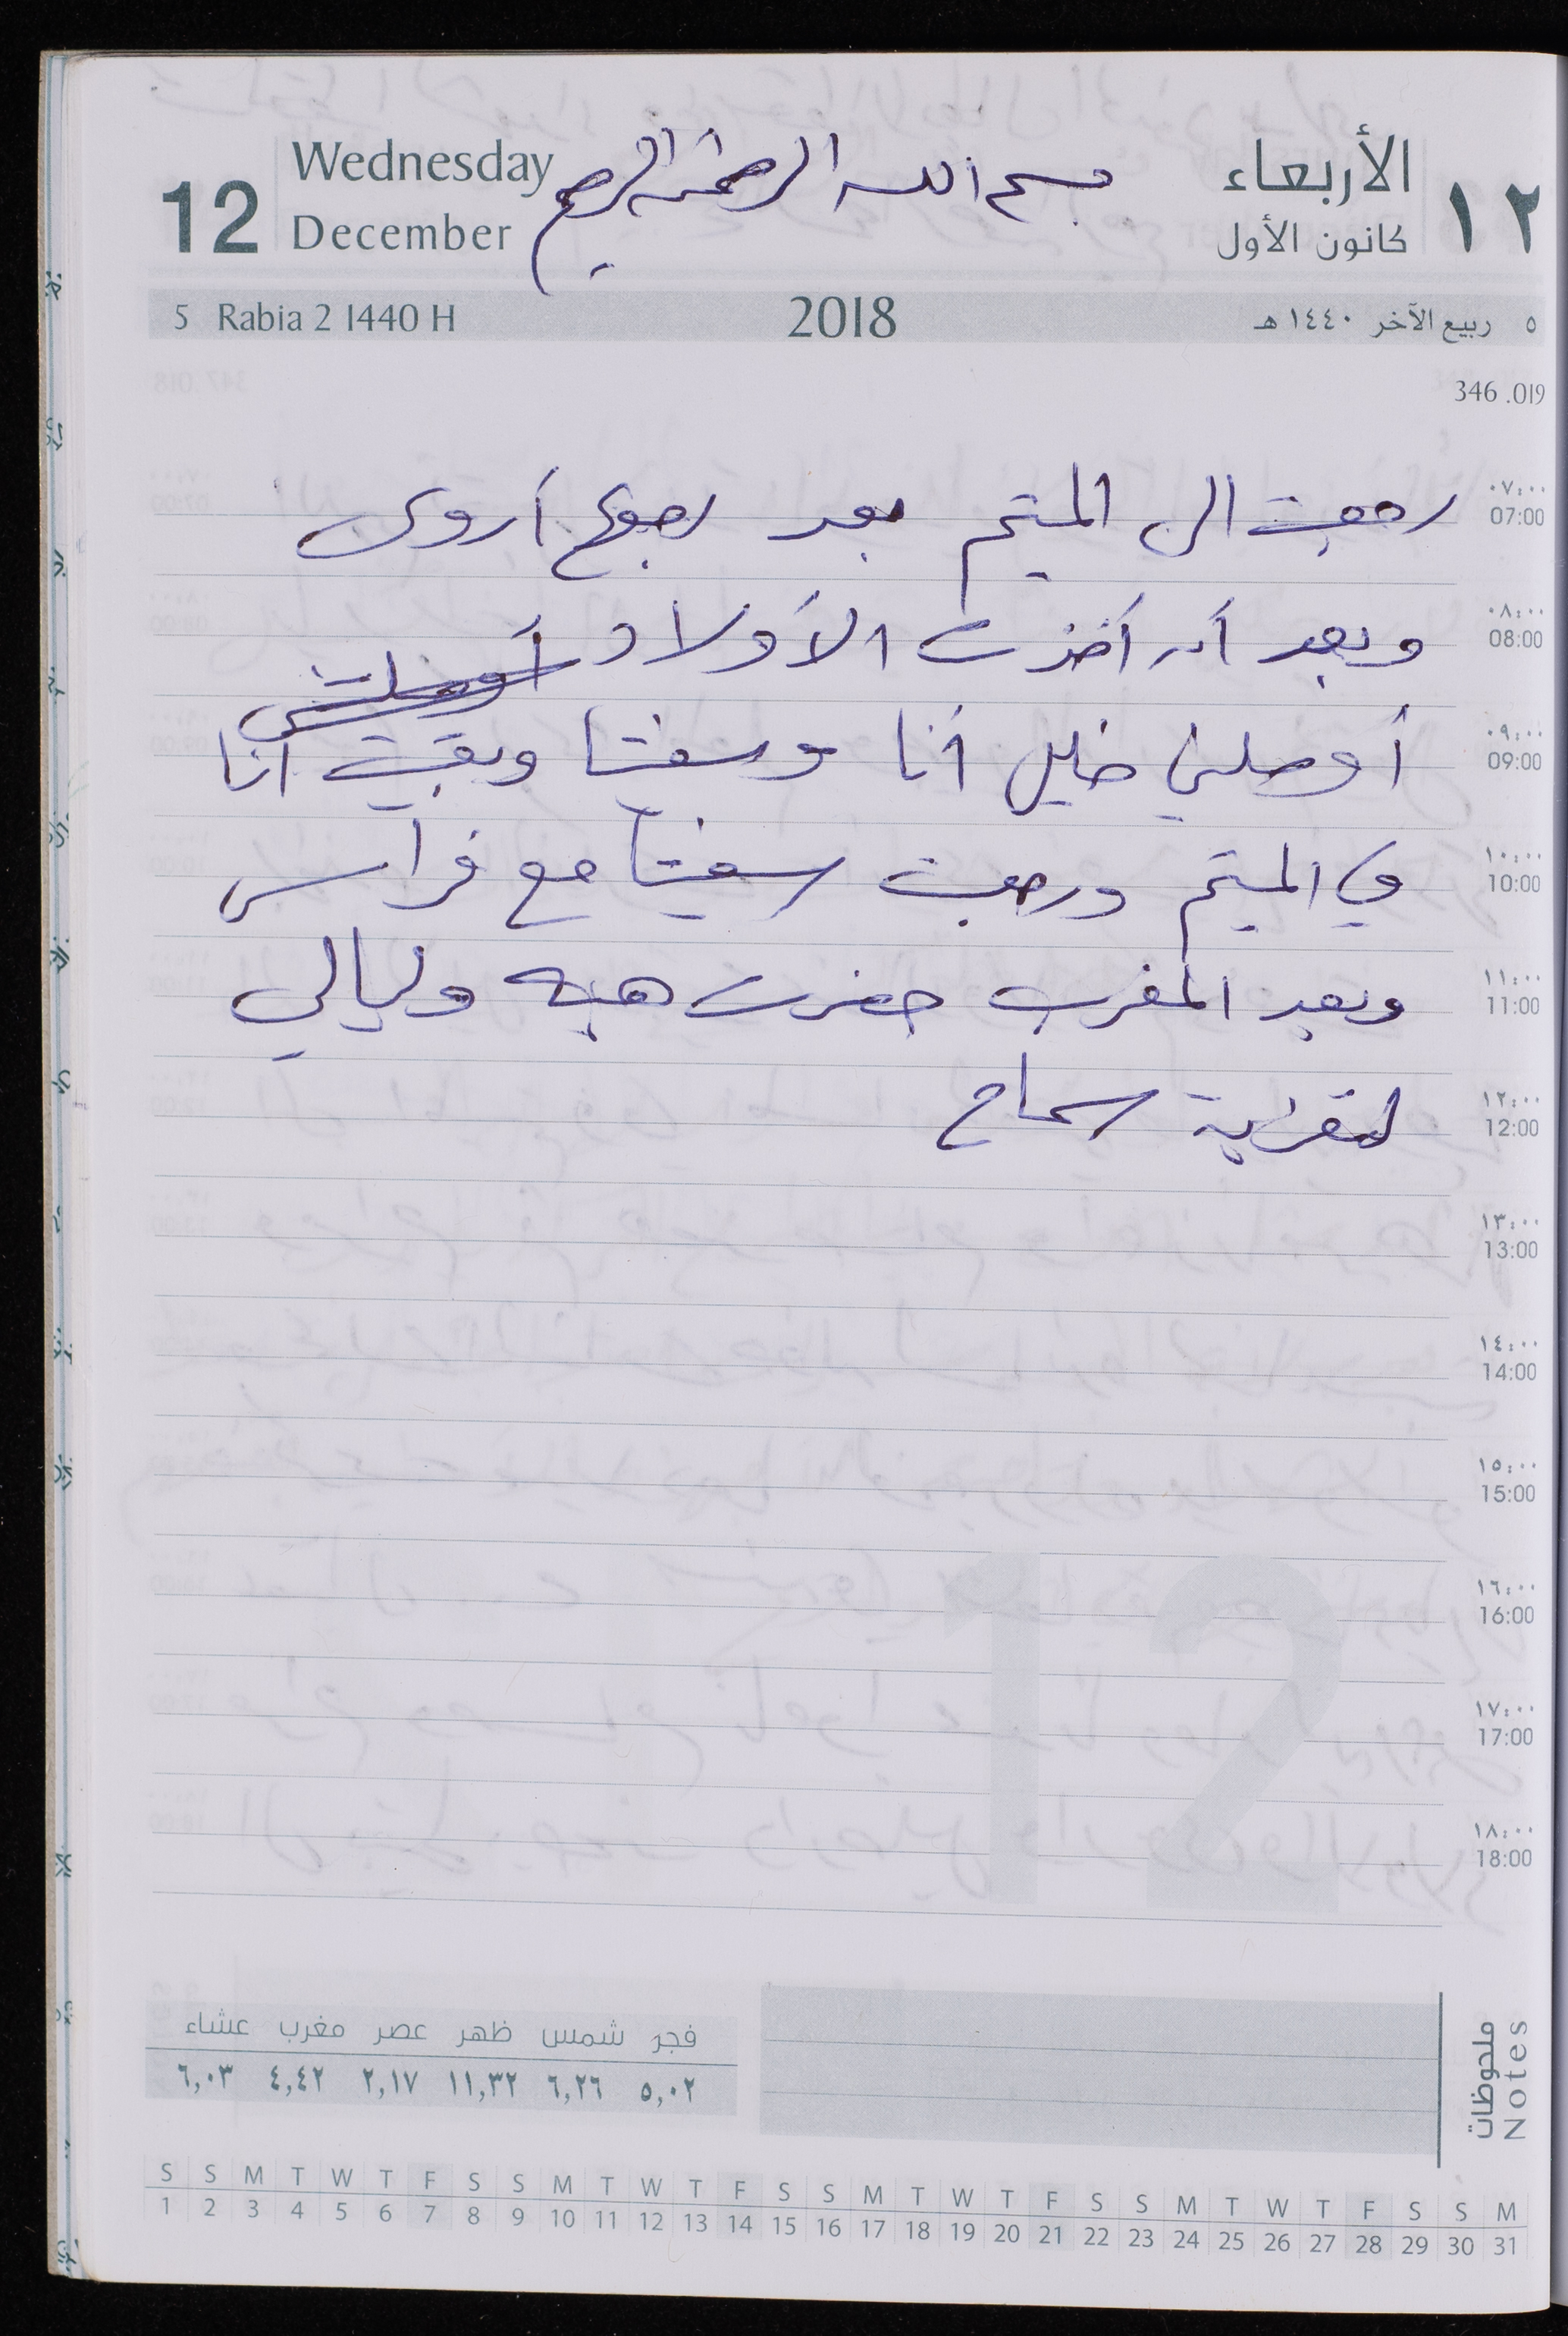 الأربعاء ١٢
كانون الأول
Wednesday 12
December
بسم الله الرحمن الرحيم
5 Rabia 2 1440 H
2018
٥ ربيع الآخر ١٤٤٠ هـ
346 .019
٠٧:٠٠
07:00
رجعت الى الميتم بعد رجوع أروى
٠٨:٠٠
08:00
وبعد أن أخذت الأولاد أوصلتني
٠٩:٠٠
09:00
أوصلني خليل أنا وسفتا وبقيت انا
١٠:٠٠
10:00
في الميتم ورجعت سفتا مع فراس
١١:٠٠
11:00
وبعد المغرب حضرت هبه وليالي
١٢:٠٠
12:00
لتعزية سماح
١٣:٠٠
13:00
١٤:٠٠
14:00
١٥:٠٠
15:00
١٦:٠٠
16:00
١٧:٠٠
17:00
١٨:٠٠
18:00
12
فجر شمس ظهر عصر مغرب عشاء
٥,٠٢ ٦,٢٦ ١١,٣٢ ٢,١٧ ٤,٤٢ ٦,٠٣
ملحوظات
Notes
S S M T W T F S S M T W T F S S M T W T F S S M T W T F S S M
1 2 3 4 5 6 7 8 9 10 11 12 13 14 15 16 17 18 19 20 21 22 23 24 25 26 27 28 29 30 31